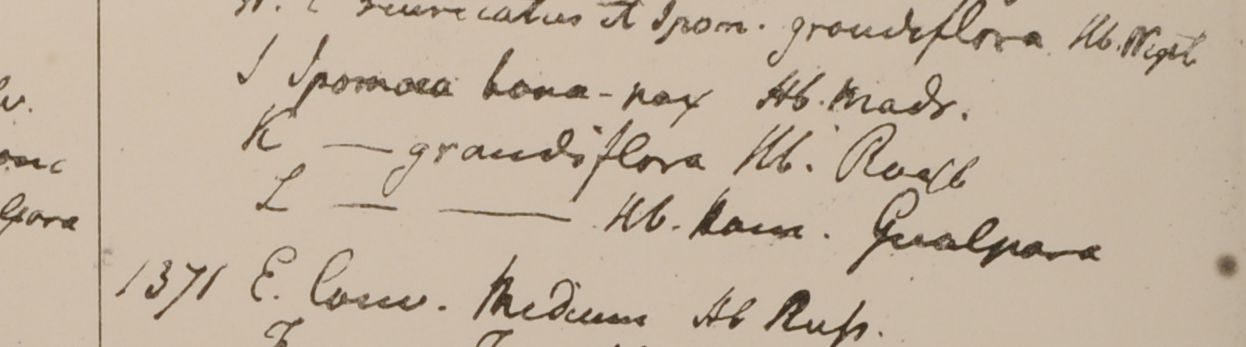 muricatus et Ipom. grandiflora Hb. Wight
J Ipomoea bona-nox Hb. Madr.
K — grandiflora Hb. Roxb
L — — Hb. Ham. Gualpara
1371 E. Conv. Medium Hb Russ.